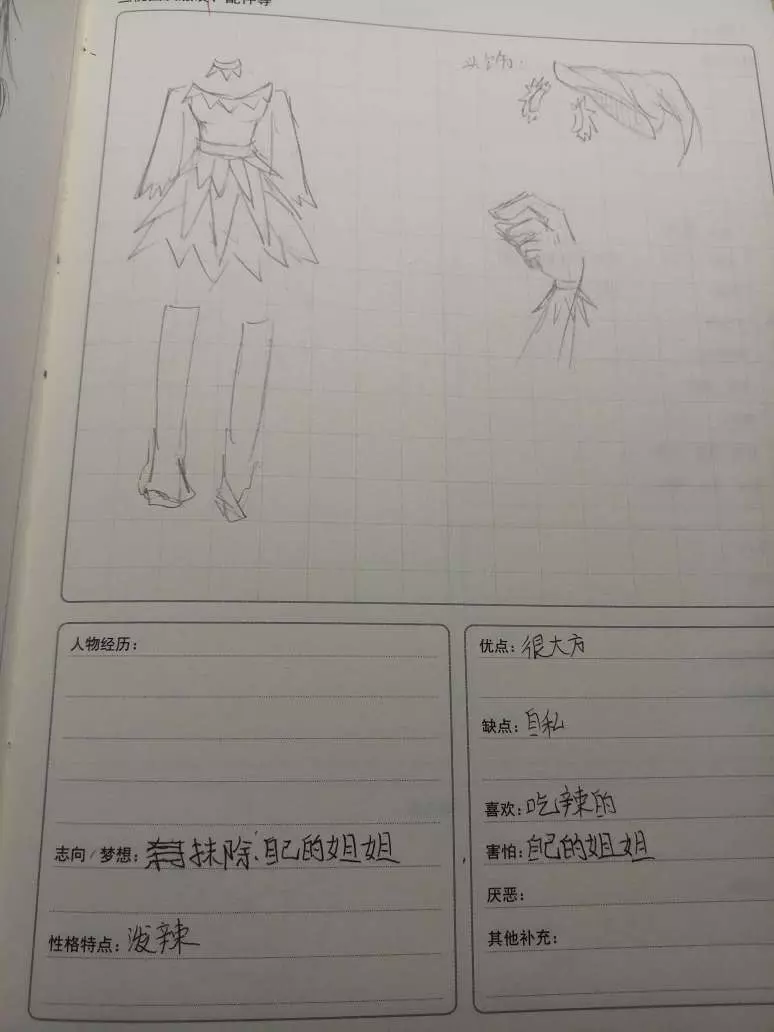 头饰:
人物经历:
志向/梦想: 抹除自己的姐姐
性格特点: 泼辣
优点: 很大方
缺点: 自私
喜欢: 吃辣的
害怕: 自己的姐姐
厌恶:
其他补充: